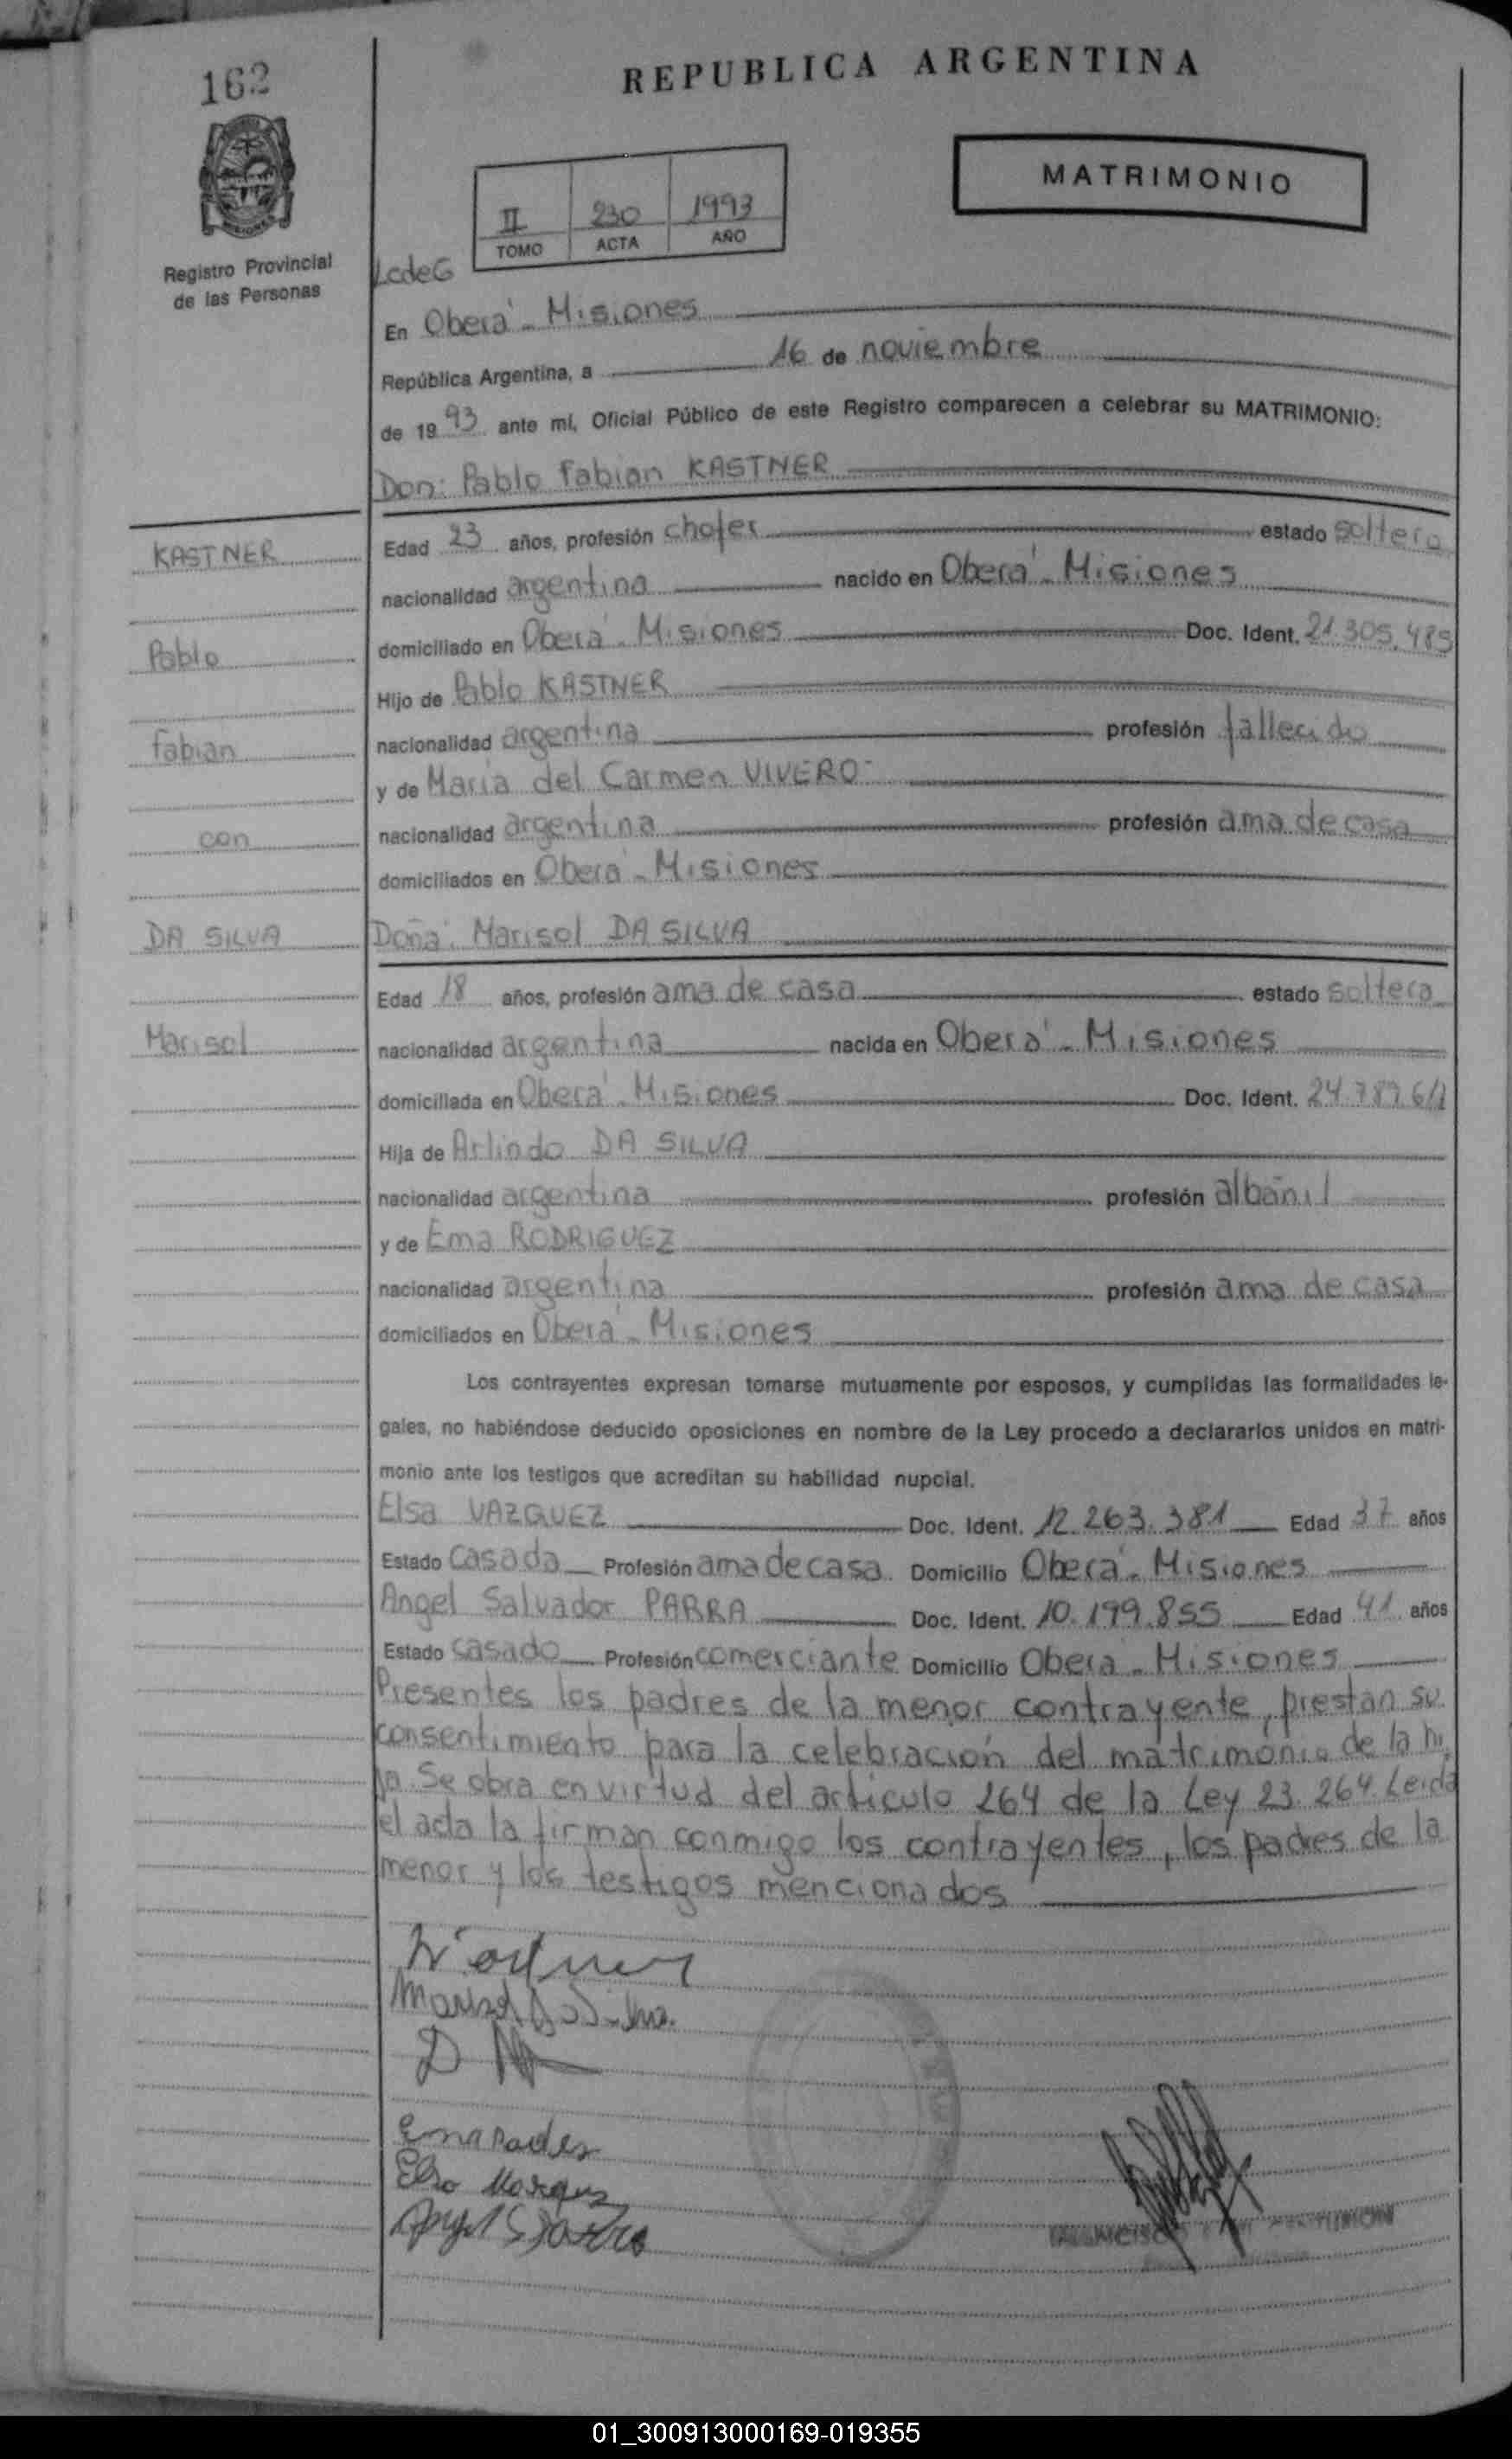 162
REPUBLICA ARGENTINA
MATRIMONIO
II 230 1993
TOMO ACTA AÑO
Registro Provincial
de las Personas
LcdeG
En Oberá - Misiones
República Argentina, a 16 de noviembre
de 19 93 ante mí, Oficial Público de este Registro comparecen a celebrar su MATRIMONIO:
Don: Pablo Fabian KASTNER
KASTNER
Edad 23 años, profesión chofer estado soltero
nacionalidad argentina nacido en Oberá - Misiones
Pablo
domiciliado en Oberá - Misiones Doc. Ident. 21.305.485
Hijo de Pablo KASTNER
Fabian
nacionalidad argentina profesión fallecido
y de María del Carmen VIVERO
con
nacionalidad argentina profesión ama de casa
domiciliados en Oberá - Misiones
DA SILVA
Doña: Marisol DA SILVA
Edad 18 años, profesión ama de casa estado soltera
Marisol
nacionalidad argentina nacida en Oberá - Misiones
domiciliada en Oberá - Misiones Doc. Ident.
Hija de Arlindo DA SILVA
nacionalidad argentina profesión albañil
y de Ema RODRIGUEZ
nacionalidad argentina profesión ama de casa
domiciliados en Oberá - Misiones
Los contrayentes expresan tomarse mutuamente por esposos, y cumplidas las formalidades le-
gales, no habiéndose deducido oposiciones en nombre de la Ley procedo a declararlos unidos en matri-
monio ante los testigos que acreditan su habilidad nupcial.
Elsa VAZQUEZ Doc. Ident. 12.263.381 Edad 37 años
Estado casada Profesión ama de casa Domicilio Oberá - Misiones
Angel Salvador PARRA Doc. Ident. 10.199.855 Edad 41 años
Estado casado Profesión comerciante Domicilio Oberá - Misiones
Presentes los padres de la menor contrayente, prestan su
consentimiento para la celebración del matrimonio de la hi
ja. Se obra en virtud del artículo 264 de la Ley 23.264. Leida
el acta la firman conmigo los contrayentes, los padres de la
menor y los testigos mencionados
01_300913000169-019355